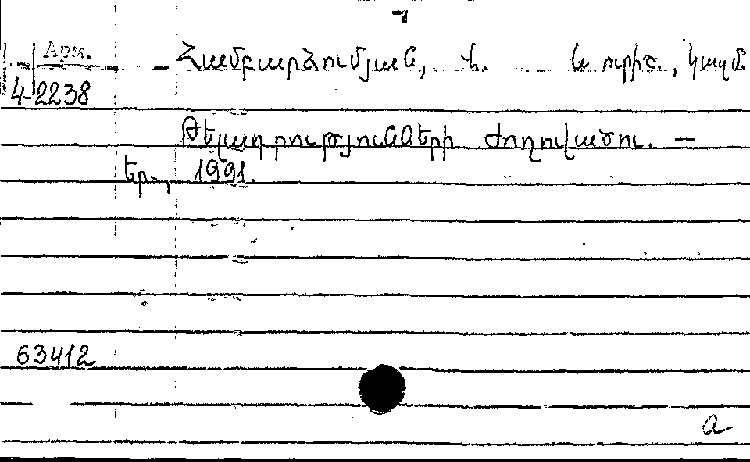 Арм.
4-2238
Համբարձումյան, Ն. և ուրիշ., կազմ.
Թելադրությունների ժողովածու. —
Եր., 1991.
63412
а